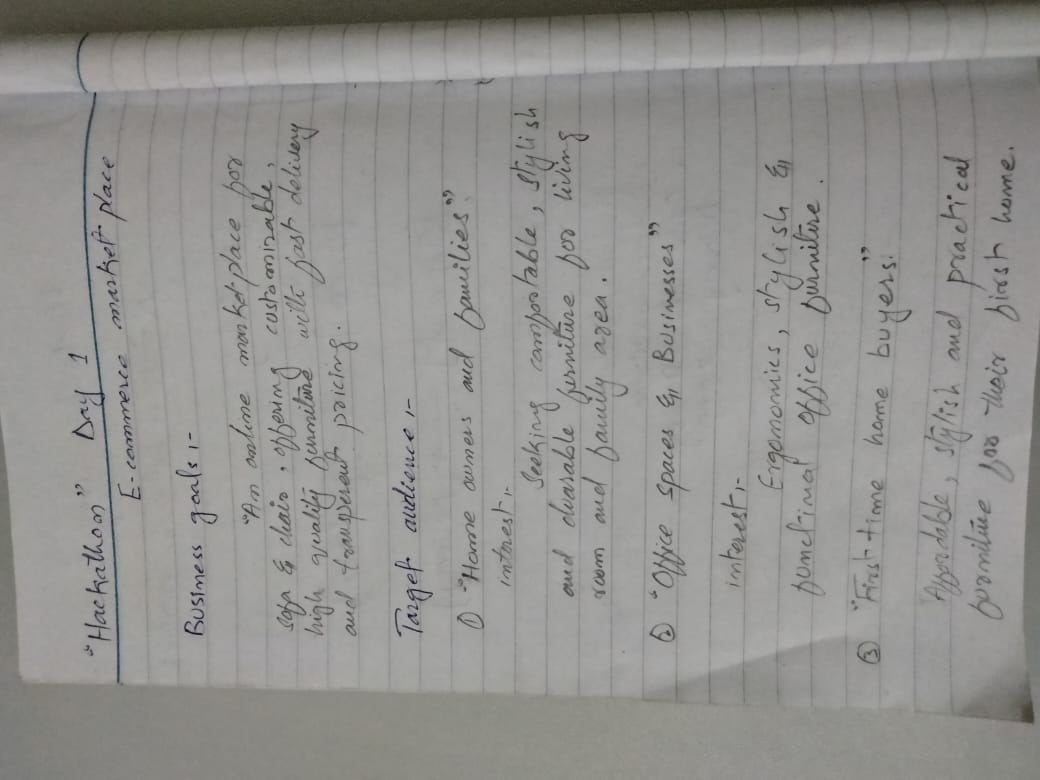 "Hackathon" Day 1
E-commerce market place
Business goals :-
"An online marketplace for
sofa & chair, offering customizable,
high quality furniture with fast delivery
and transperent pricing.
Target audience :-
① "Home owners and families".
interest :-
Seeking comfortable, stylish
and durable furniture for living
room and family area.
② "Office spaces & Businesses"
interest :-
Ergonomics, stylish &
functional office furniture.
③ "First time home buyers."
Affordable, stylish and practical
furnitue for their first home.